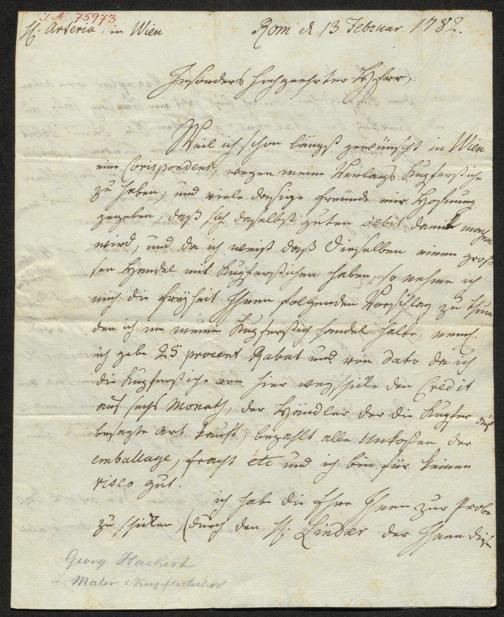 I.N. 75973
H. Arteria in Wien Rom d 13 Februar 1782.
Insonders Hochgeehrter Herr.
Weil ich schon längst gewünscht in Wien
eine Corispondens, wegen meine Verlags Kupferstiche
zu haben, und viele dasige freunde mir Hofnung
gegeben, daß sich daselbst guten Debit damit machen
wird, und da ich weiß daß Dieselben einen groß
sen Handel mit Kupferstichen haben, so nehme ich
mich die freyheit Ihnen folgenden Vorschlag zu thun
den ich in meine Kupferstich handel halte, neml.
ich gebe 25 procent Rabat und von dato da ich
die Kupferstiche von hier weg schike den Credit
auf sechs Monath, der Händler der die Kupfer auf
besagte Art kauft, bezahlt alle Unkosten der
emballage, fracht etc und ich bin für keinen
risco gut.
ich habe die Ehre Ihnen zur Probe
zu schiken (durch den H. Linder der Ihnen die
Georg Hackert
Maler u Kupferstecher